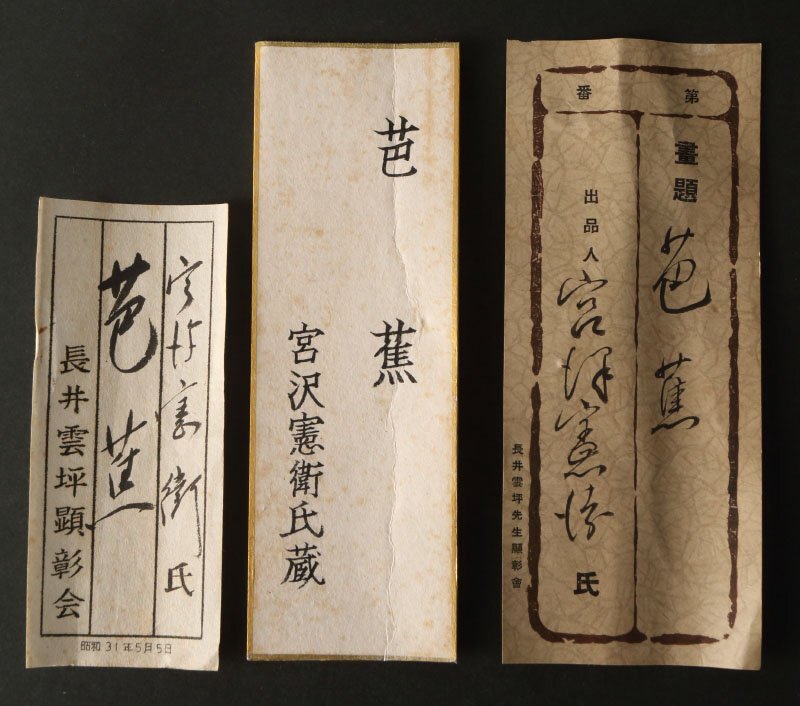 宮沢憲衛氏
芭蕉
長井雲坪顕彰会
昭和31年5月5日
芭蕉
宮沢憲衛氏蔵
第番
畫題 芭蕉
出品人 宮澤憲衛氏
長井雲坪先生顯彰會